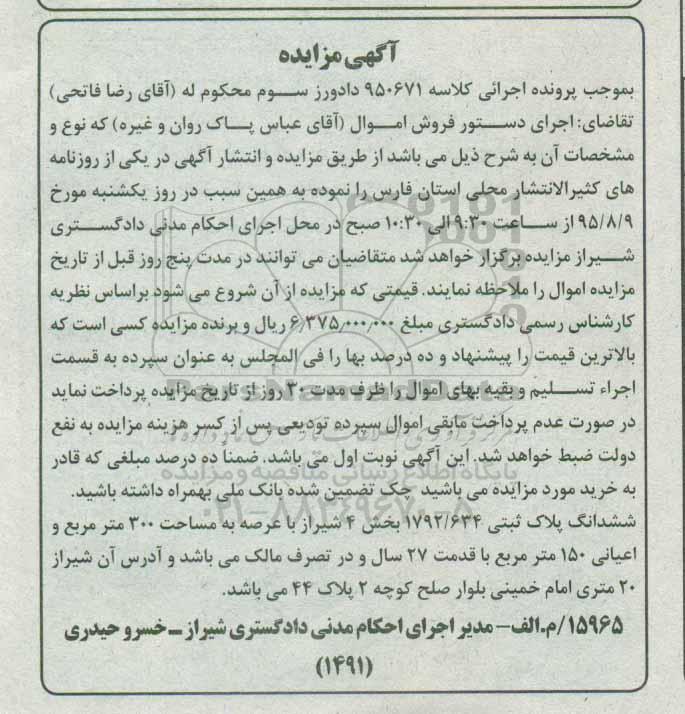 آگهی مزایده
بموجب پرونده اجرائی کلاسه ۹۵۰۶۷۱ دادورز سوم محکوم له (آقای رضا فاتحی)
تقاضای: اجرای دستور فروش اموال (آقای عباس پاک روان و غیره) که نوع و
مشخصات آن به شرح ذیل می باشد از طریق مزایده و انتشار آگهی در یکی از روزنامه
های کثیرالانتشار محلی استان فارس را نموده به همین سبب در روز یکشنبه مورخ
۹۵/۸/۹ از ساعت ۹:۳۰ الی ۱۰:۳۰ صبح در محل اجرای احکام مدنی دادگستری
شیراز مزایده برگزار خواهد شد متقاضیان می توانند در مدت پنج روز قبل از تاریخ
مزایده اموال را ملاحظه نمایند. قیمتی که مزایده از آن شروع می شود براساس نظریه
کارشناس رسمی دادگستری مبلغ ۶/۳۷۵/۰۰۰/۰۰۰ ریال و برنده مزایده کسی است که
بالاترین قیمت را پیشنهاد و ده درصد بها را فی المجلس به عنوان سپرده به قسمت
اجراء تسلیم و بقیه بهای اموال را ظرف مدت ۳۰ روز از تاریخ مزایده پرداخت نماید
در صورت عدم پرداخت مابقی اموال سپرده تودیعی پس از کسر هزینه مزایده به نفع
دولت ضبط خواهد شد. این آگهی نوبت اول می باشد. ضمنا ده درصد مبلغی که قادر
به خرید مورد مزایده می باشید چک تضمین شده بانک ملی بهمراه داشته باشید.
ششدانگ پلاک ثبتی ۱۷۹۲/۶۳۴ بخش ۴ شیراز با عرصه به مساحت ۳۰۰ متر مربع و
اعیانی ۱۵۰ متر مربع با قدمت ۲۷ سال و در تصرف مالک می باشد و آدرس آن شیراز
۲۰ متری امام خمینی بلوار صلح کوچه ۲ پلاک ۴۴ می باشد.
۱۵۹۶۵/م.الف- مدیر اجرای احکام مدنی دادگستری شیراز – خسرو حیدری
(۱۴۹۱)
ParsNamadData
پایگاه اطلاع رسانی مناقصه و مزایده
۰۲۱-۸۸۳۴۹۶۷۰-۵